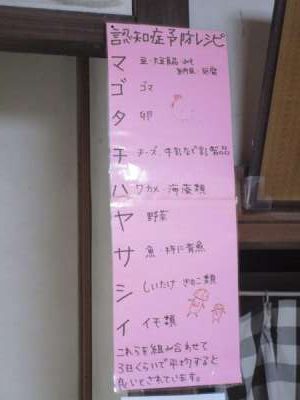 認知症予防レシピ
マ 豆・大豆食品 みそ
納豆・豆腐
ゴ ゴマ
タ 卵
チ チーズ 牛乳など乳製品
ハ ワカメ 海藻類
ヤ 野菜
サ 魚 特に青魚
シ しいたけ きのこ類
イ イモ類
これらを組み合わせて
3日くらいで平均すると
良いとされています。